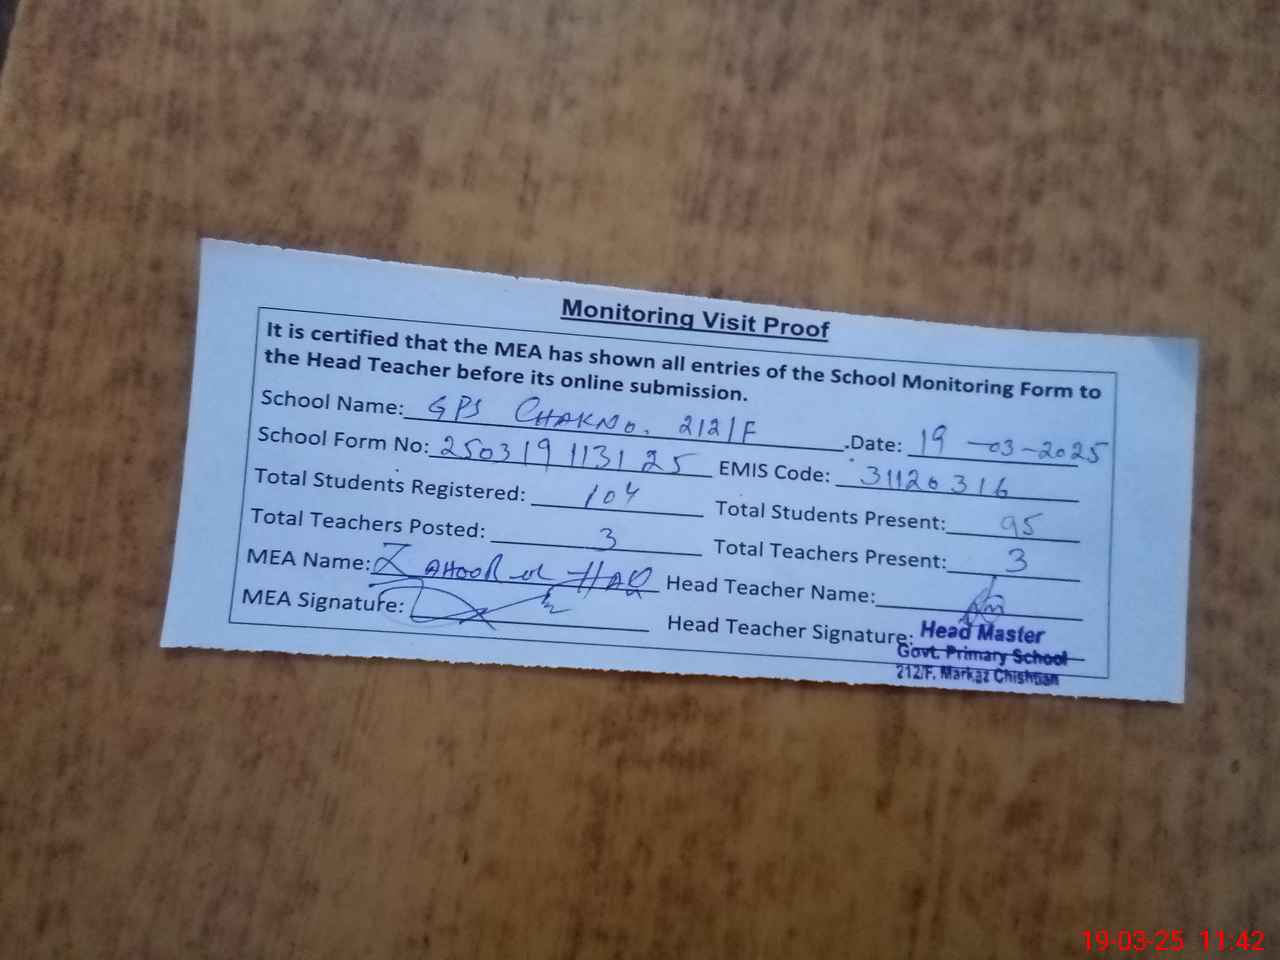 Monitoring Visit Proof
It is certified that the MEA has shown all entries of the School Monitoring Form to
the Head Teacher before its online submission.
School Name: GPS CHAK No. 212/F .Date: 19-03-2025
School Form No: 250319113125 EMIS Code: 31120316
Total Students Registered: 104 Total Students Present: 95
Total Teachers Posted: 3 Total Teachers Present: 3
MEA Name: ZAHOOR ul HAQ Head Teacher Name:
MEA Signature: Head Teacher Signature:
Head Master
Govt. Primary School
212/F. Markaz Chishtian
19-03-25 11:42